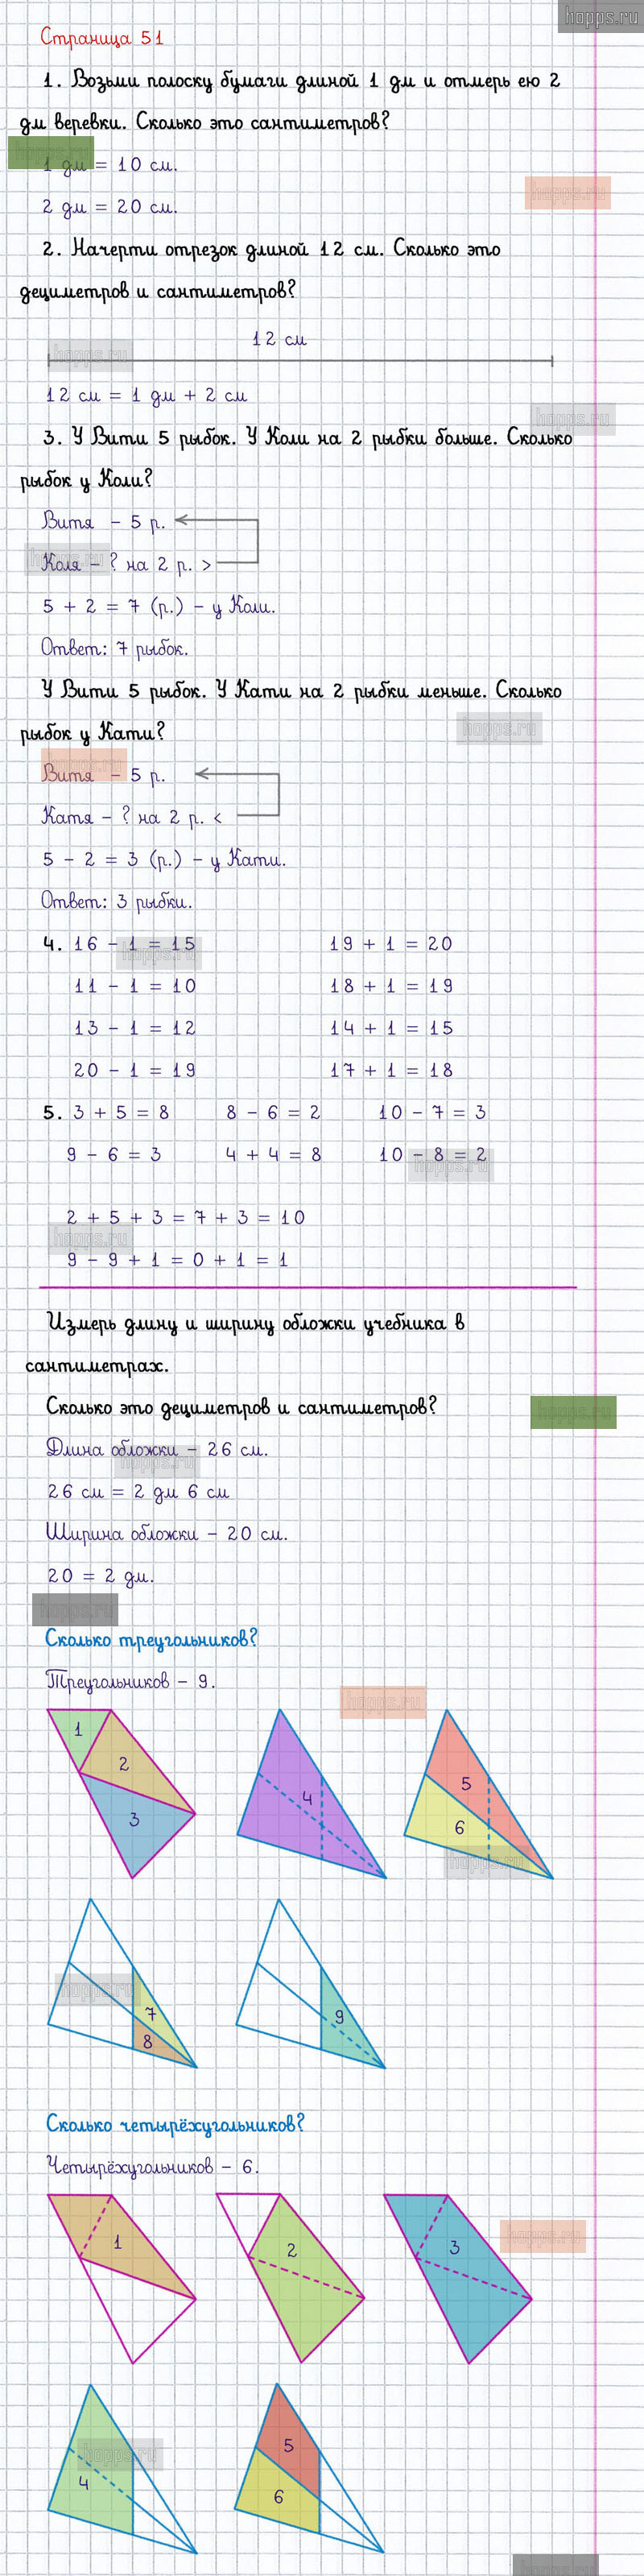 hopps.ru
Страница 51
1. Возьми полоску бумаги длиной 1 дм и отмерь ею 2
дм веревки. Сколько это сантиметров?
hopps.ru
1 дм = 10 см.
hopps.ru
2 дм = 20 см.
2. Начерти отрезок длиной 12 см. Сколько это
дециметров и сантиметров?
12 см
hopps.ru
12 см = 1 дм + 2 см
hopps.ru
3. У Вити 5 рыбок. У Коли на 2 рыбки больше. Сколько
рыбок у Коли?
Витя - 5 р.
hopps.ru
Коля - ? на 2 р. >
5 + 2 = 7 (р.) - у Коли.
Ответ: 7 рыбок.
У Вити 5 рыбок. У Кати на 2 рыбки меньше. Сколько
hopps.ru
рыбок у Кати?
hopps.ru
Витя - 5 р.
Катя - ? на 2 р. <
5 - 2 = 3 (р.) - у Кати.
Ответ: 3 рыбки.
4. 16 - 1 = 15 19 + 1 = 20
hopps.ru
11 - 1 = 10 18 + 1 = 19
13 - 1 = 12 14 + 1 = 15
20 - 1 = 19 17 + 1 = 18
5. 3 + 5 = 8 8 - 6 = 2 10 - 7 = 3
9 - 6 = 3 4 + 4 = 8 10 - 8 = 2
hopps.ru
2 + 5 + 3 = 7 + 3 = 10
hopps.ru
9 - 9 + 1 = 0 + 1 = 1
Измерь длину и ширину обложки учебника в
сантиметрах.
Сколько это дециметров и сантиметров?
hopps.ru
Длина обложки - 26 см.
hopps.ru
26 см = 2 дм 6 см
Ширина обложки - 20 см.
20 = 2 дм.
hopps.ru
Сколько треугольников?
Треугольников - 9.
hopps.ru
1
2
3
4
5
6
hopps.ru
hopps.ru
7
8
9
Сколько четырёхугольников?
Четырёхугольников - 6.
1
2
3
hopps.ru
4
hopps.ru
5
6
hopps.ru